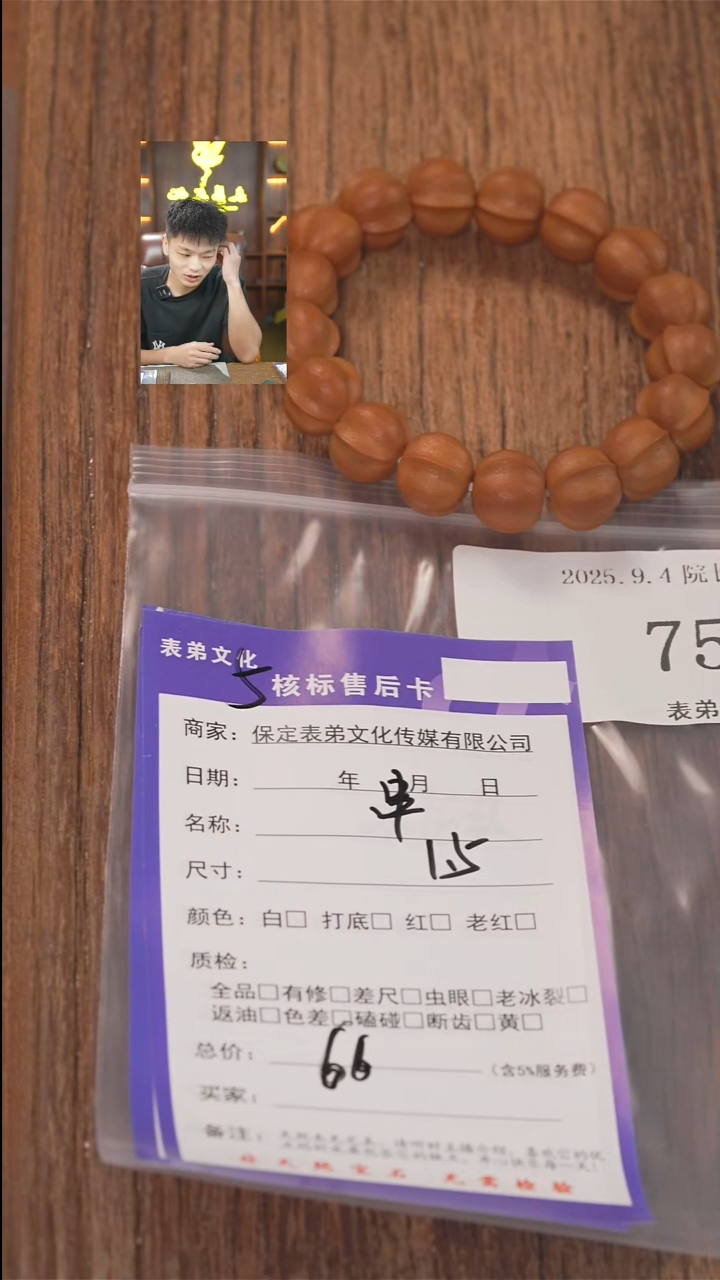 2025.9.4 院
75
表弟
表弟文化
5 核标售后卡
商家：保定表弟文化传媒有限公司
日期： 年 月 日
串
名称：
15
尺寸：
颜色：白□ 打底□ 红□ 老红□
质检：
全品□有修□差尺□虫眼□老冰裂□
返油□色差□磕碰□断齿□黄□
总价： 66 （含5%服务费）
买家：
备注：